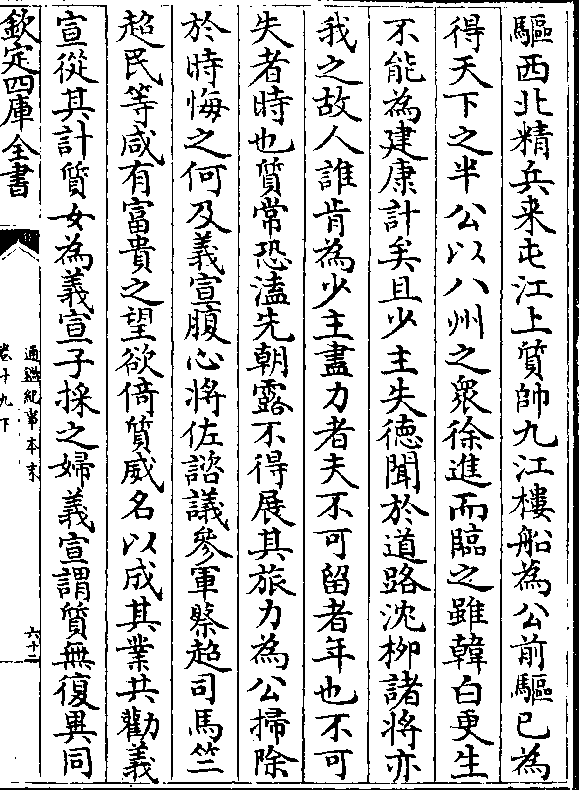 驅西北精兵来屯江上質帥九江樓船為公前驅已為
得天下之半公以八州之衆徐進而臨之雖韓白更生
不能為建康計矣且少主失徳聞於道路沈栁諸將亦
我之故人誰肯為少主盡力者夫不可留者年也不可
失者時也質常恐溘先朝露不得展其旅力為公掃除
於時悔之何及義宣腹心將佐諮議參軍蔡超司馬竺
超民等咸有富貴之望欲倚質威名以成其業共勸義
宣從其計質女為義宣子採之婦義宣謂質無復異同
欽定四庫全書
通鑑紀事本末
卷十九下
六十二